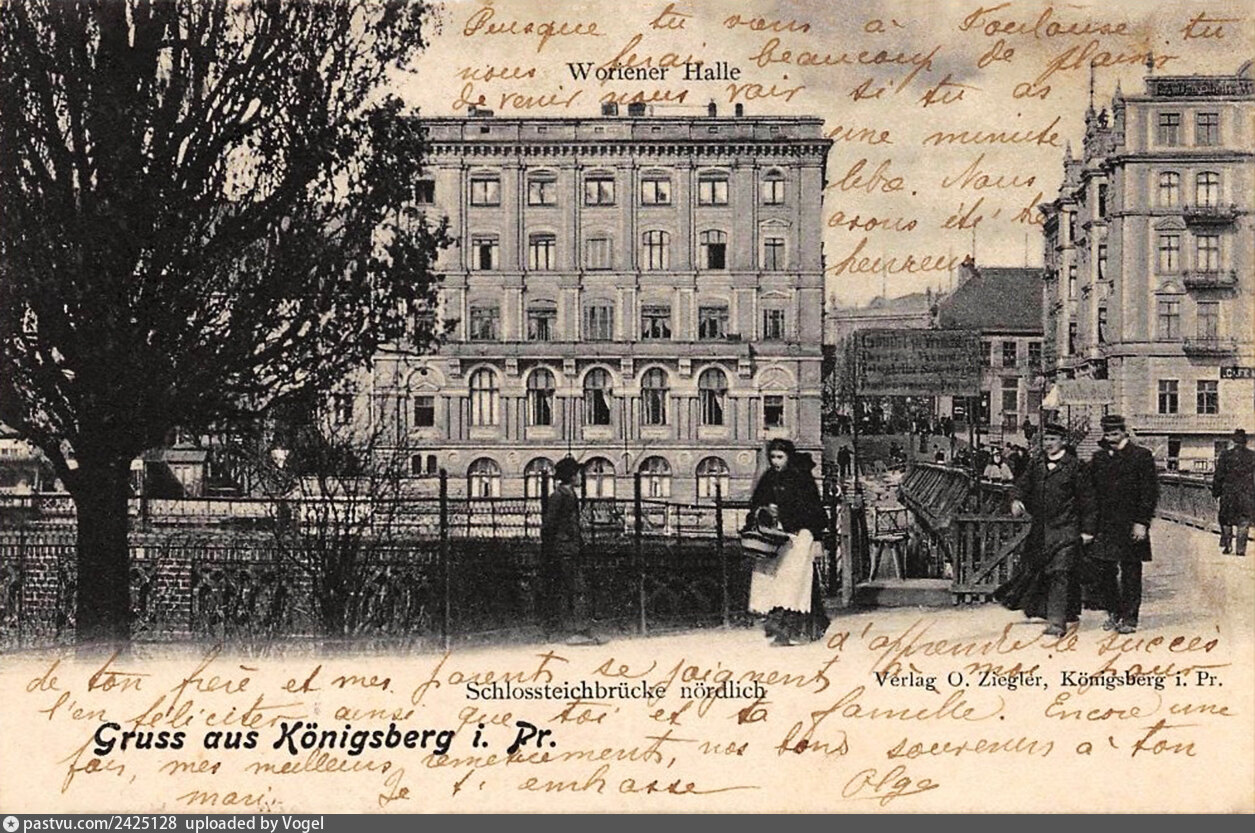 Puisque tu vas à Toulouse tu
nous ferais beaucoup de plaisir
Woriener Halle
de venir nous voir si tu as
une minute
Nous
avons été
heureux
CAFE
d'apprendre le succès
de ton frère et mes parents se joignent à moi pour
Schlossteichbrücke nördlich
Verlag O. Ziegler, Königsberg i. Pr.
l'en féliciter ainsi que toi et ta famille. Encore une
Gruss aus Königsberg i. Pr.
fois, mes meilleurs remerciements, nos bons souvenirs à ton
mari. Je t'embrasse Olga
pastvu.com/2425128 uploaded by Vogel